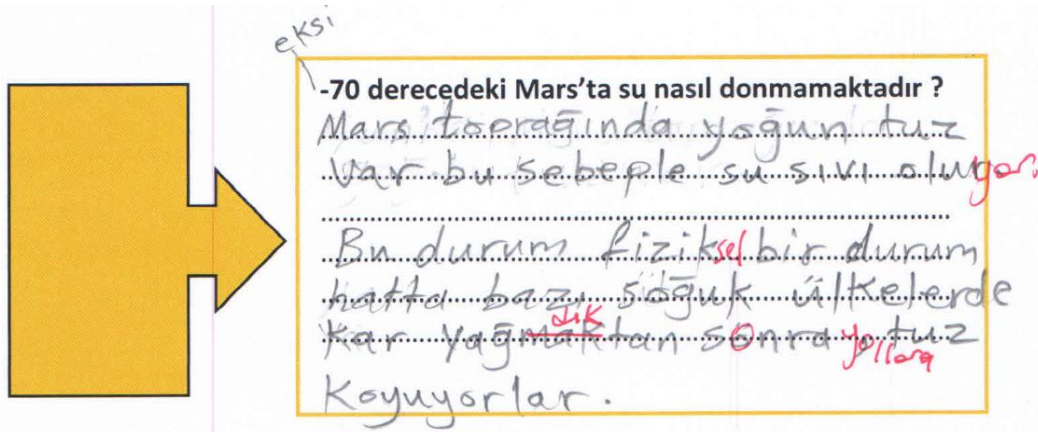 eksi
-70 derecedeki Mars'ta su nasıl donmamaktadır ?
Mars toprağında yoğun tuz
var bu sebeple su sıvı oluyor.
Bu durum fiziksel bir durum
hatta bazı soğuk ülkelerde
dık
Kar yağmaktan sonra yollara tuz
Koyuyorlar.